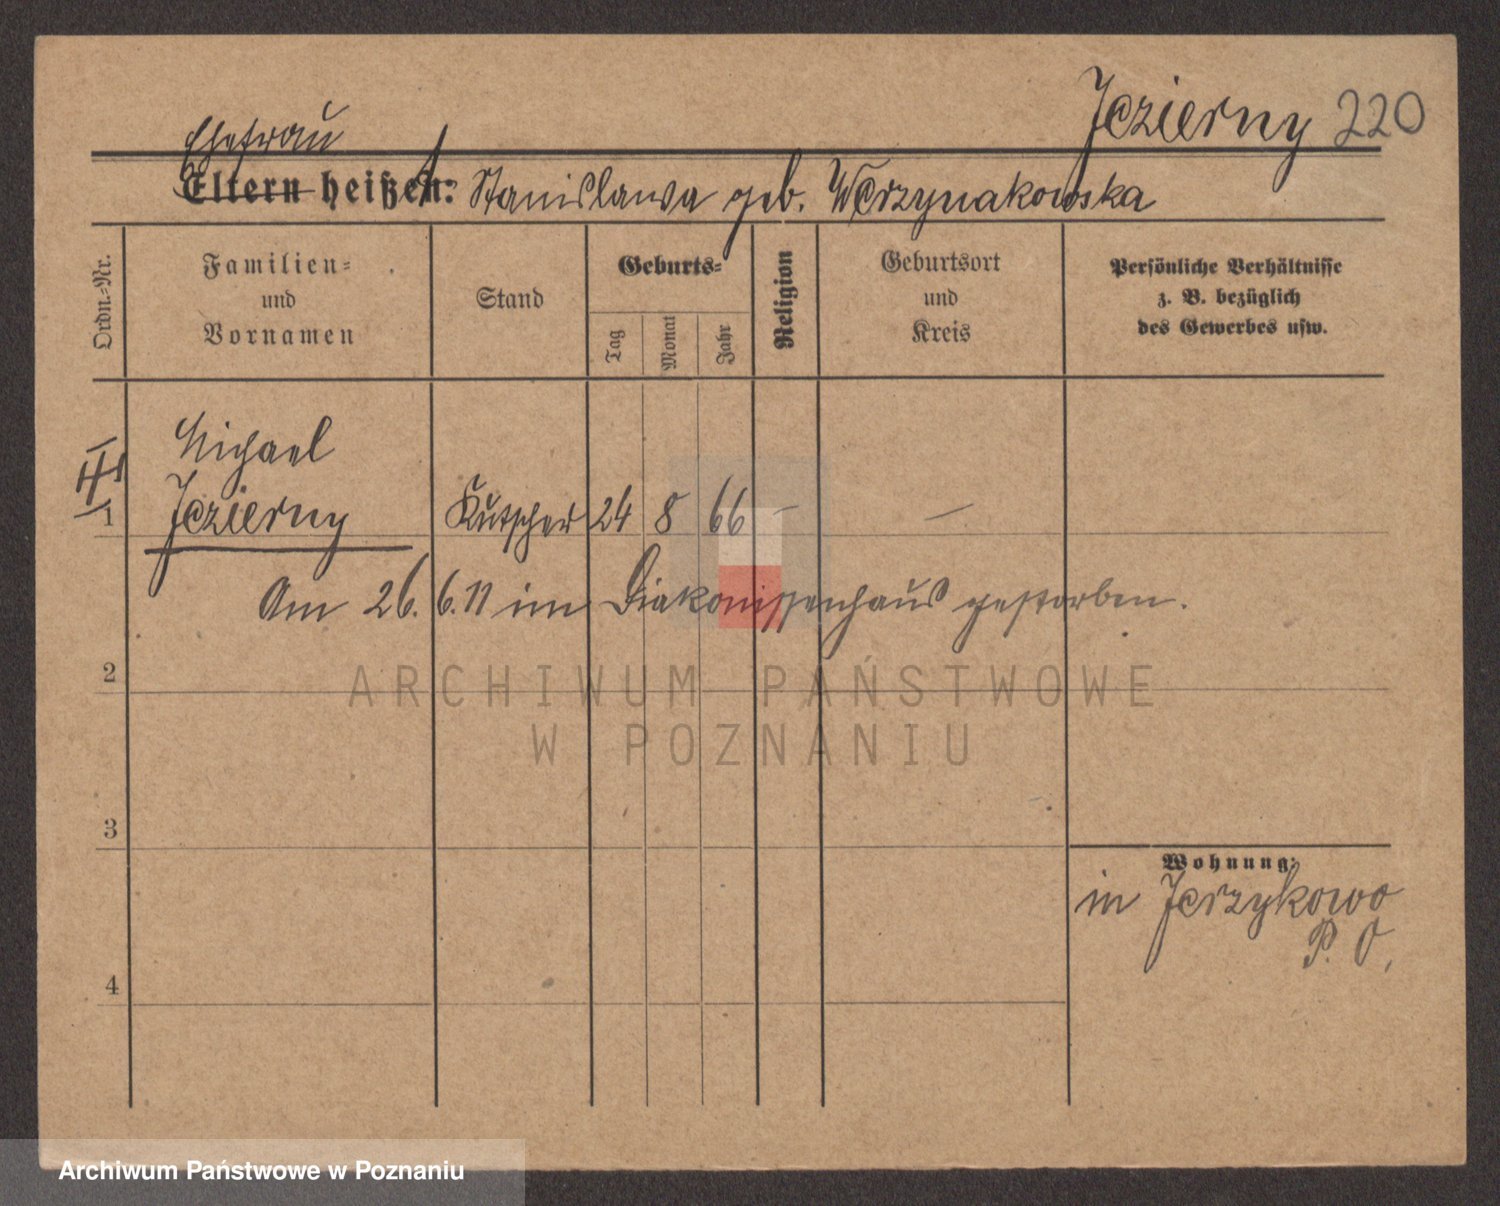 Jezierny 220
Ehefrau
Eltern heißen: Stanislawa geb.
Ordn.-Nr.
Familien-
und
Vornamen
Stand
Geburts-
Tag
Monat
Jahr
Religion
Geburtsort
und
Kreis
Persönliche Verhältnisse
z. B. bezüglich
des Gewerbes usw.
Michael
1 Jezierny Kutscher 24 8 66 – –
Am 26. 6. 11 im Diakonissenhaus gestorben.
2
ARCHIWUM PAŃSTWOWE
W POZNANIU
3
Wohnung:
in Jerzykowo
P. O.
4
Archiwum Państwowe w Poznaniu